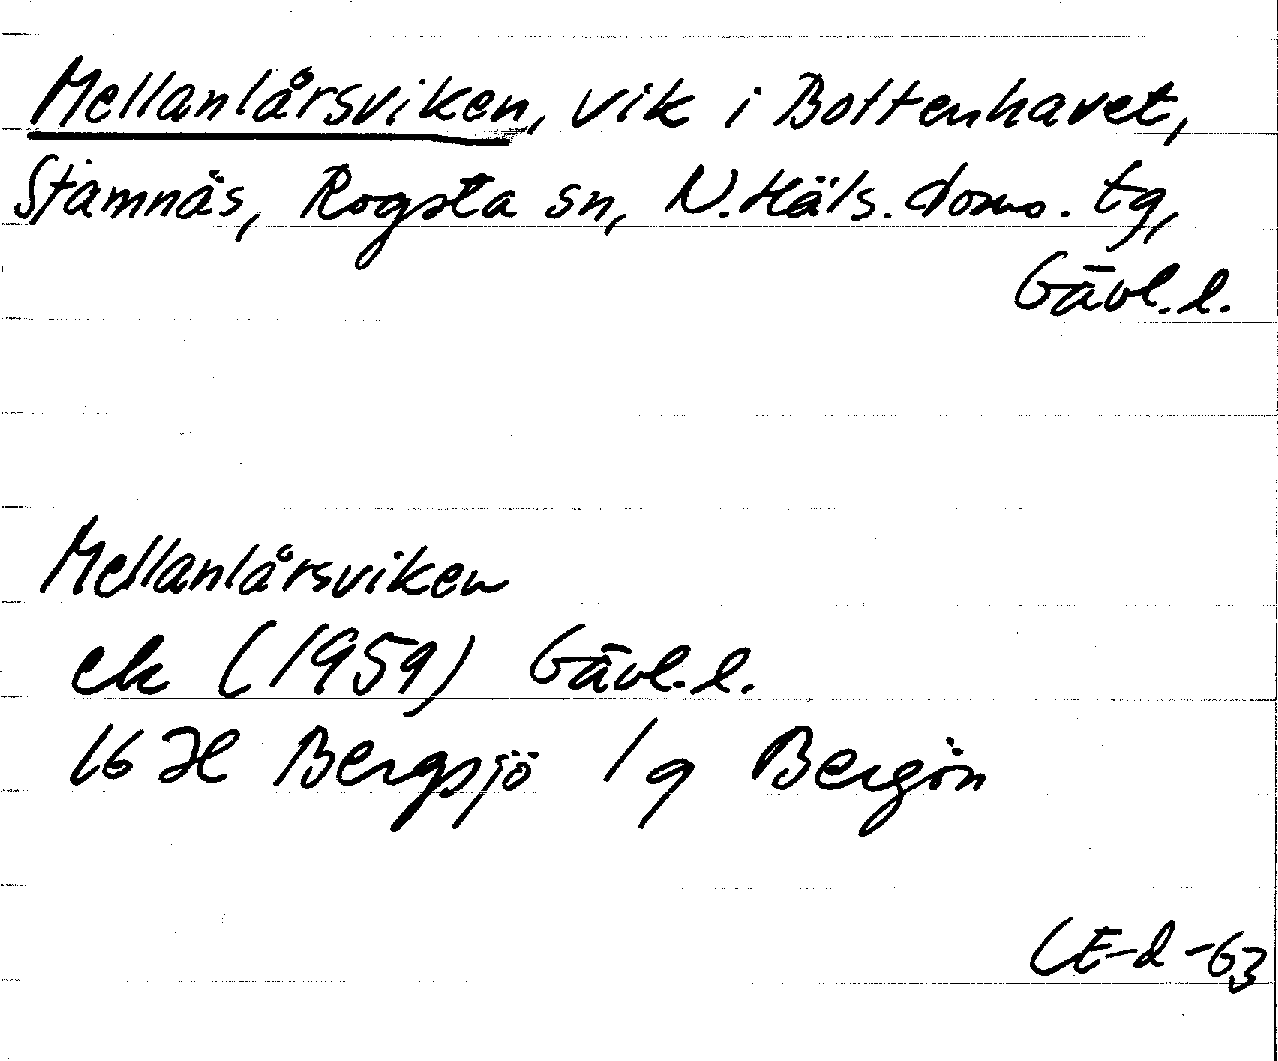 Mellanlårsviken, vik i Bottenhavet,
Stamnäs, Rogsta sn, N. Häls. doms. tg,
Gävl. l.
Mellanlårsviken
ek (1959) Gävl. l.
16 H Bergsjö 1 g Bergön
CE-d -63